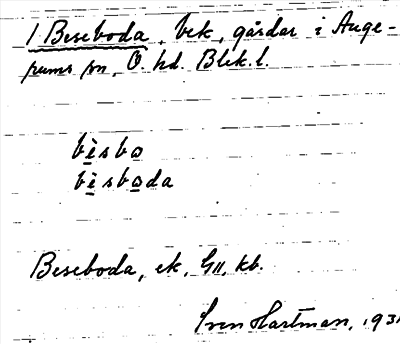 1 Beseboda, bek, gårdar i Auge-
rums sn, Ö. hd. Blek. l.
bèsbo
bèsboda
Beseboda, ek, GII, kb.
Sven Hartman, 193